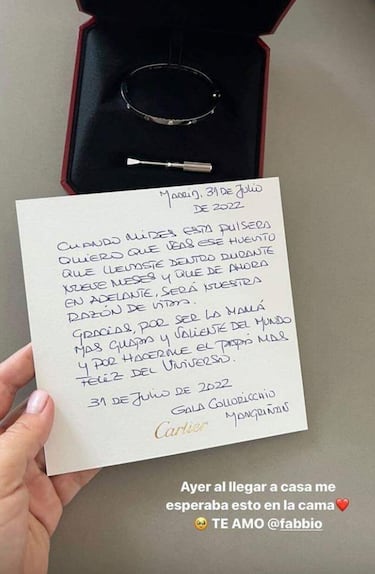 MADRID, 31 DE JULIO
DE 2022
CUANDO MIRES ESTA PULSERA
QUIERO QUE VEAS ESE HUEVITO
QUE LLEVASTE DENTRO DURANTE
NUEVE MESES Y QUE DE AHORA
EN ADELANTE, SERÁ NUESTRA
RAZÓN DE VIDA.
GRACIAS, POR SER LA MAMÁ
MAS GUAPA Y VALIENTE DEL MUNDO
Y POR HACERME EL PAPÁ MAS
FELIZ DEL UNIVERSO.
31 DE JULIO DE 2022
GALA COLLORICCHIO
MANGRIÑAN
Cartier
Ayer al llegar a casa me
esperaba esto en la cama❤️
🥹 TE AMO @fabbio